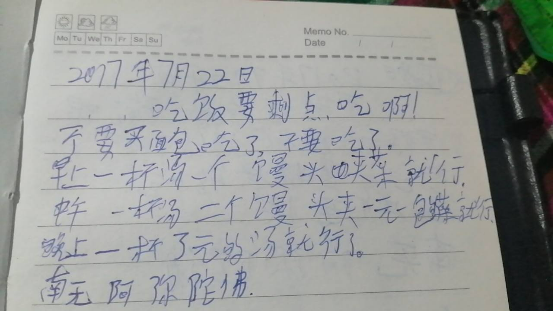 Memo No.
Mo Tu We Th Fr Sa Su
Date / /
2017年7月22日
吃饭要剩点吃啊!
不要买面包吃了,不要吃了。
早上一杯汤一个馒头夹菜就行,
中午一杯汤二个馒头夹一元一包就行
晚上一杯了元的汤就行了。
南无阿弥陀佛.